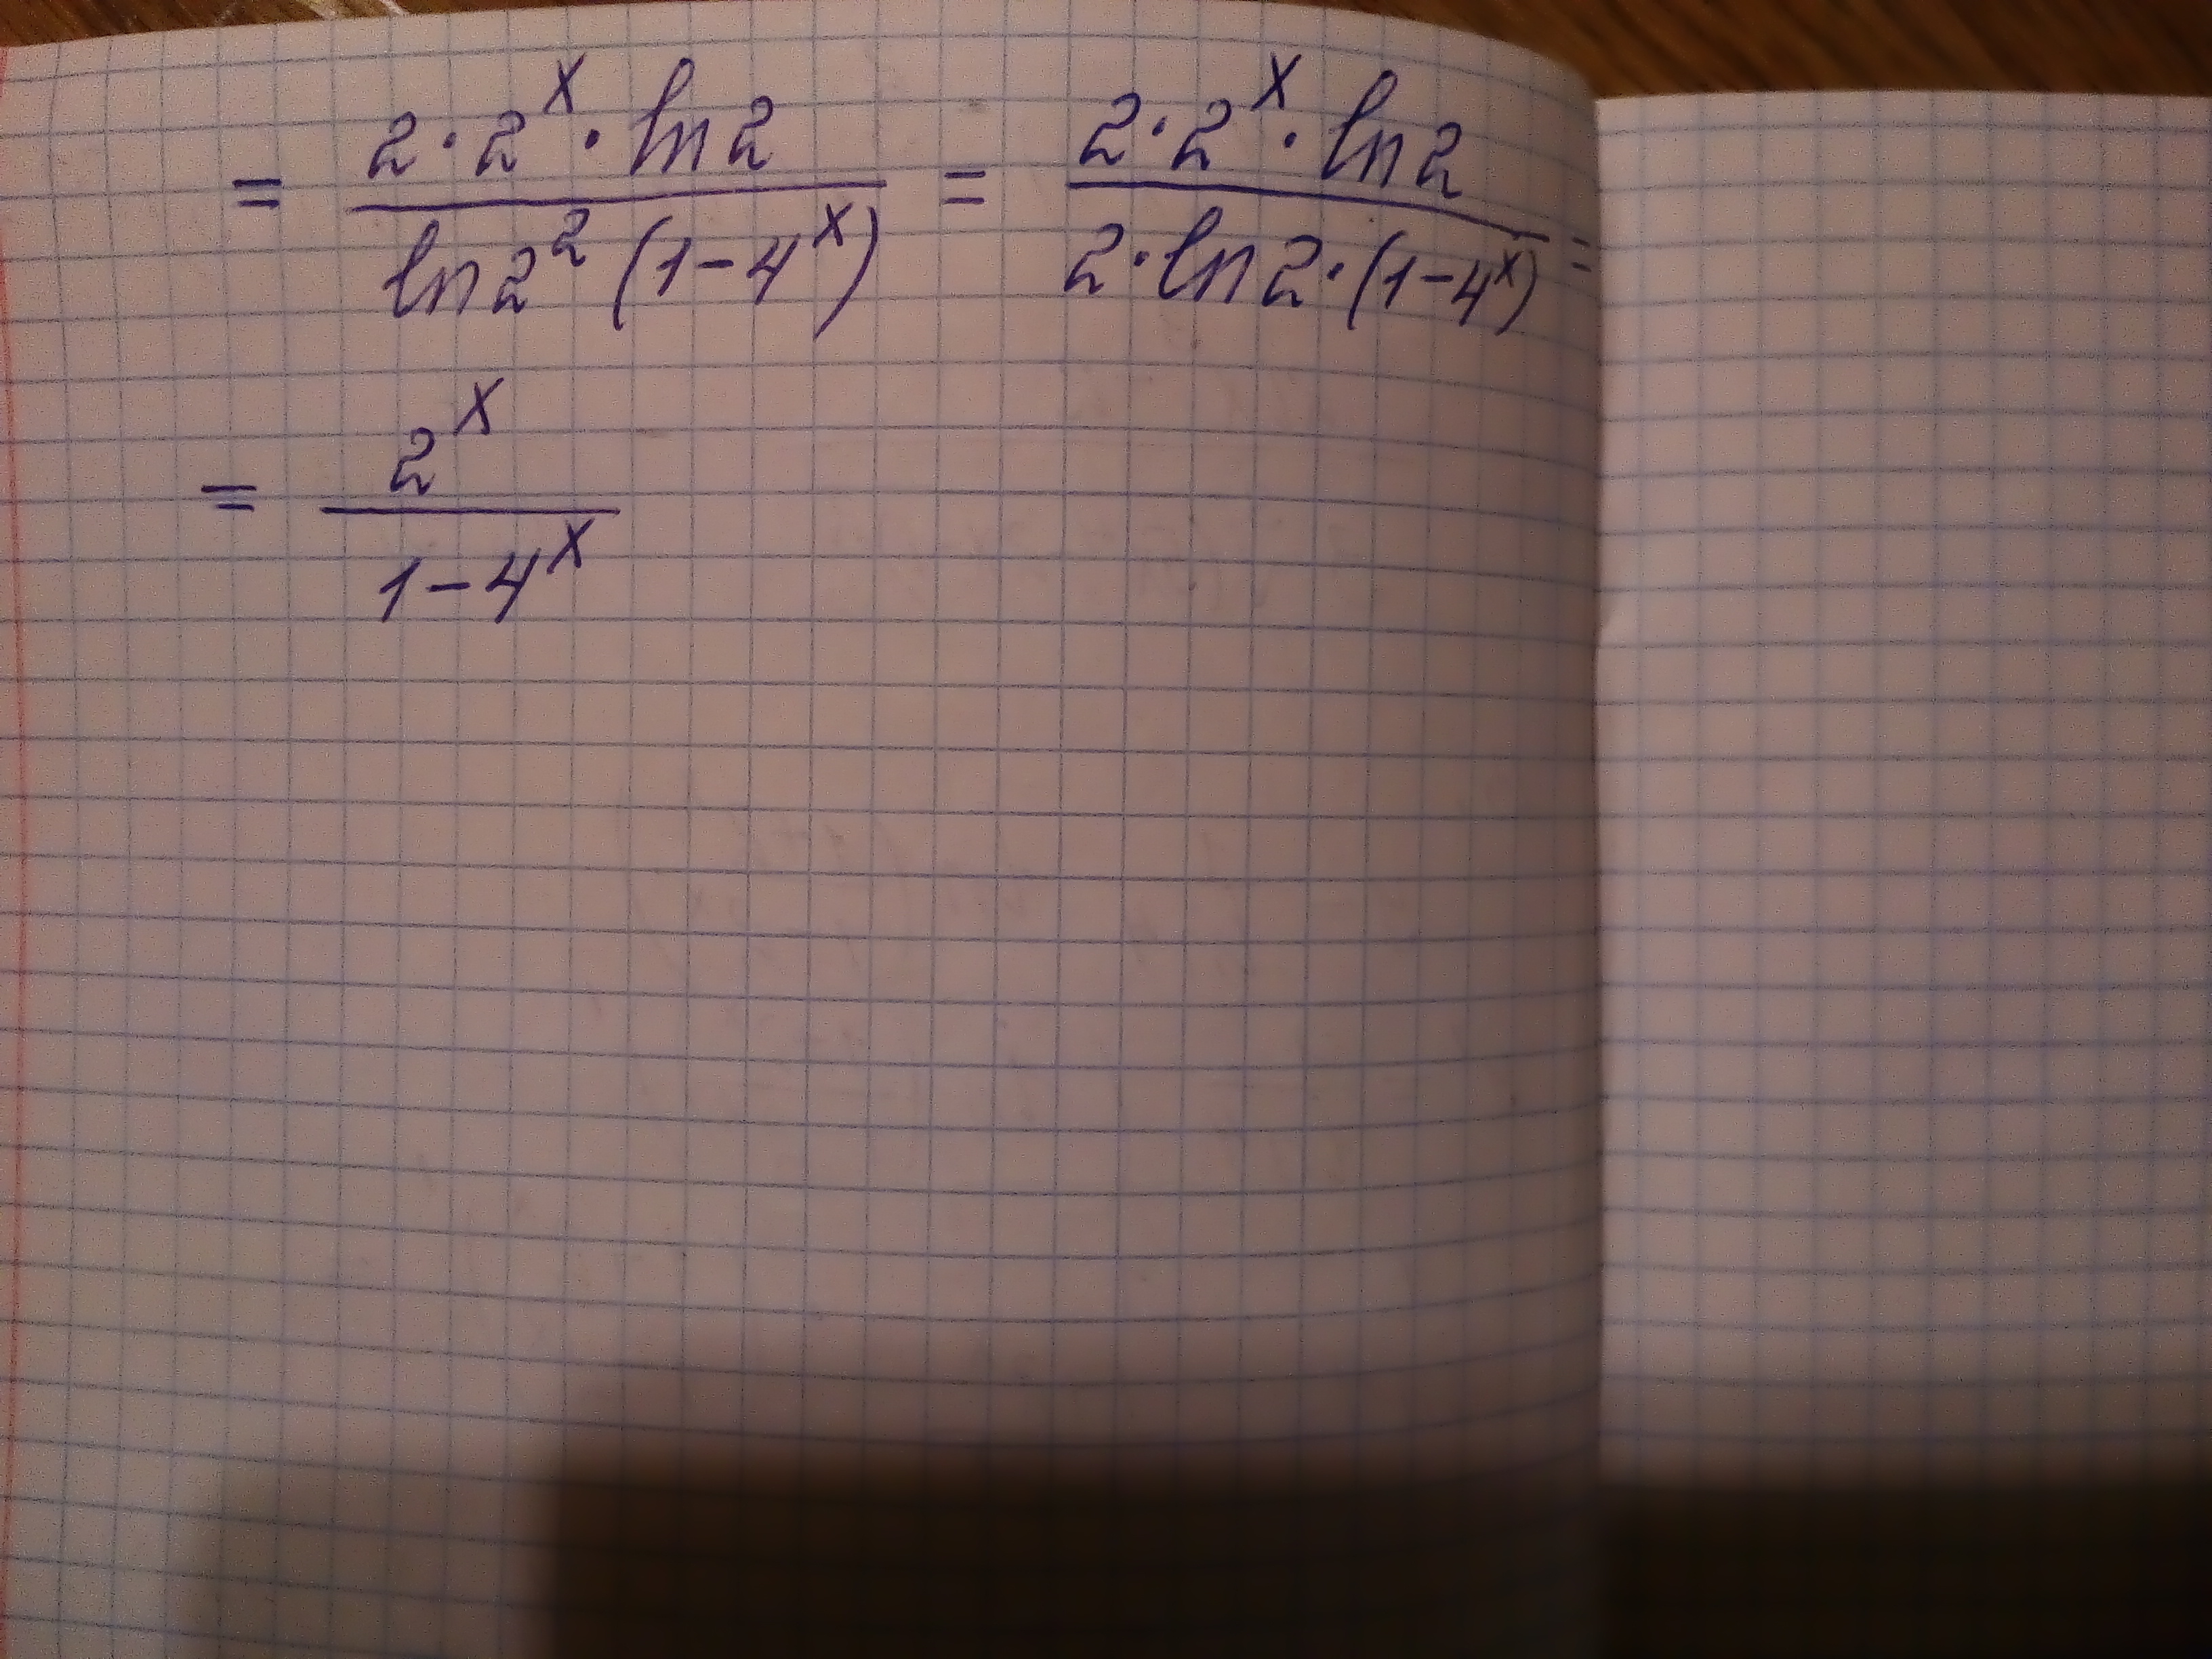 = \frac{2 \cdot 2^x \cdot \ln 2}{\ln 2^2 (1-4^x)} = \frac{2 \cdot 2^x \cdot \ln 2}{2 \cdot \ln 2 \cdot (1-4^x)} =
= \frac{2^x}{1-4^x}